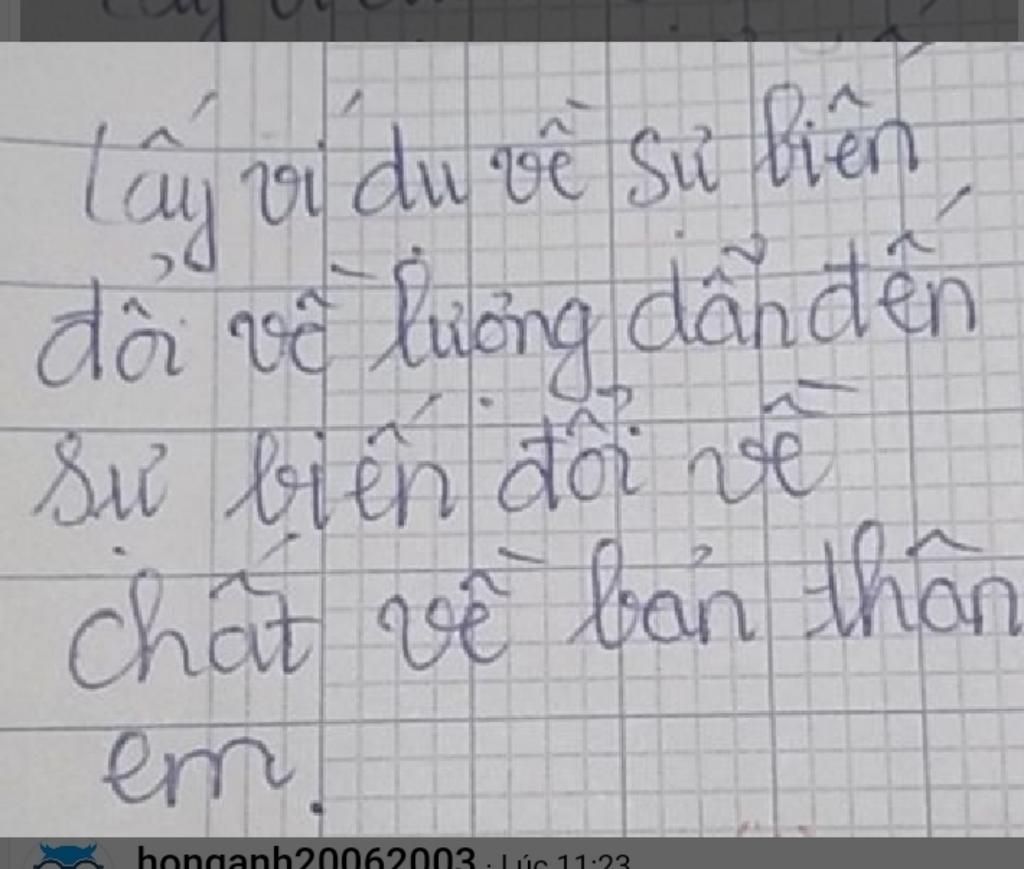 Lấy ví dụ về sự biến
đổi về lượng dẫn đến
sự biến đổi về
chất về bản thân
em.
honganh20062003 · Lúc 11:23